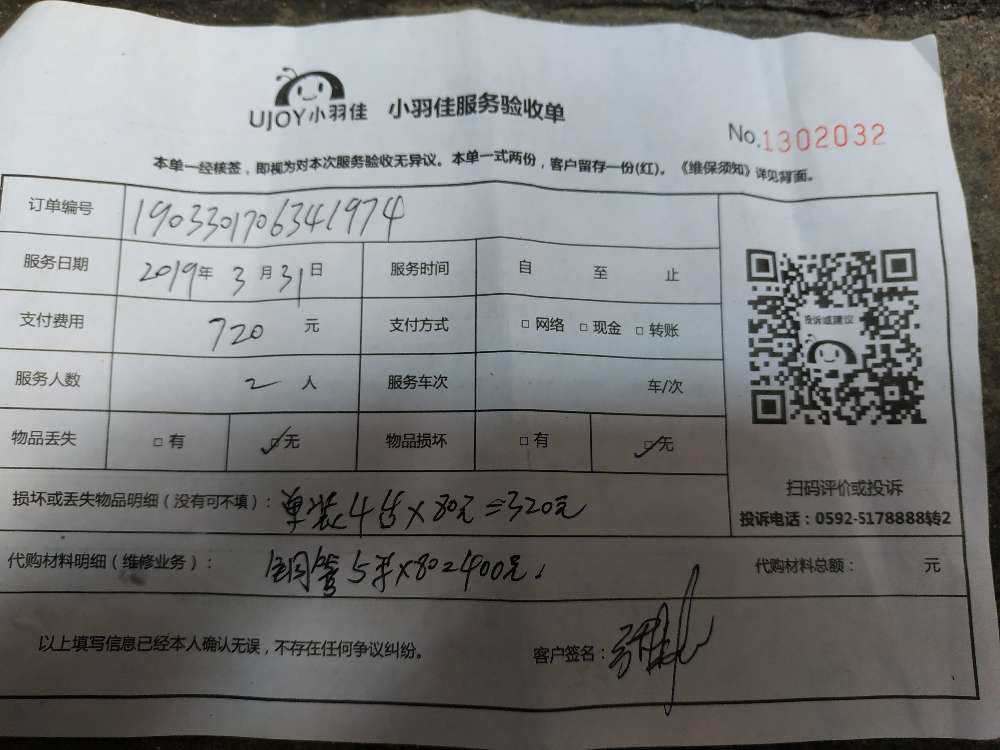 UJOY小羽佳 小羽佳服务验收单
No.1302032
本单一经核签，即视为对本次服务验收无异议。本单一式两份，客户留存一份(红)。《维保须知》详见背面。
订单编号 1903301706341974
服务日期 2019年3月31日 服务时间 自 至 止
支付费用 720 元 支付方式 □网络 □现金 □转账
服务人数 2 人 服务车次 车/次
物品丢失 □有 ☑无 物品损坏 □有 ☑无
投诉或建议
扫码评价或投诉
投诉电话：0592-5178888转2
损坏或丢失物品明细（没有可不填）：单装4台×80元=320元
代购材料明细（维修业务）：铜管5米×80=400元 代购材料总额： 元
以上填写信息已经本人确认无误，不存在任何争议纠纷。 客户签名：